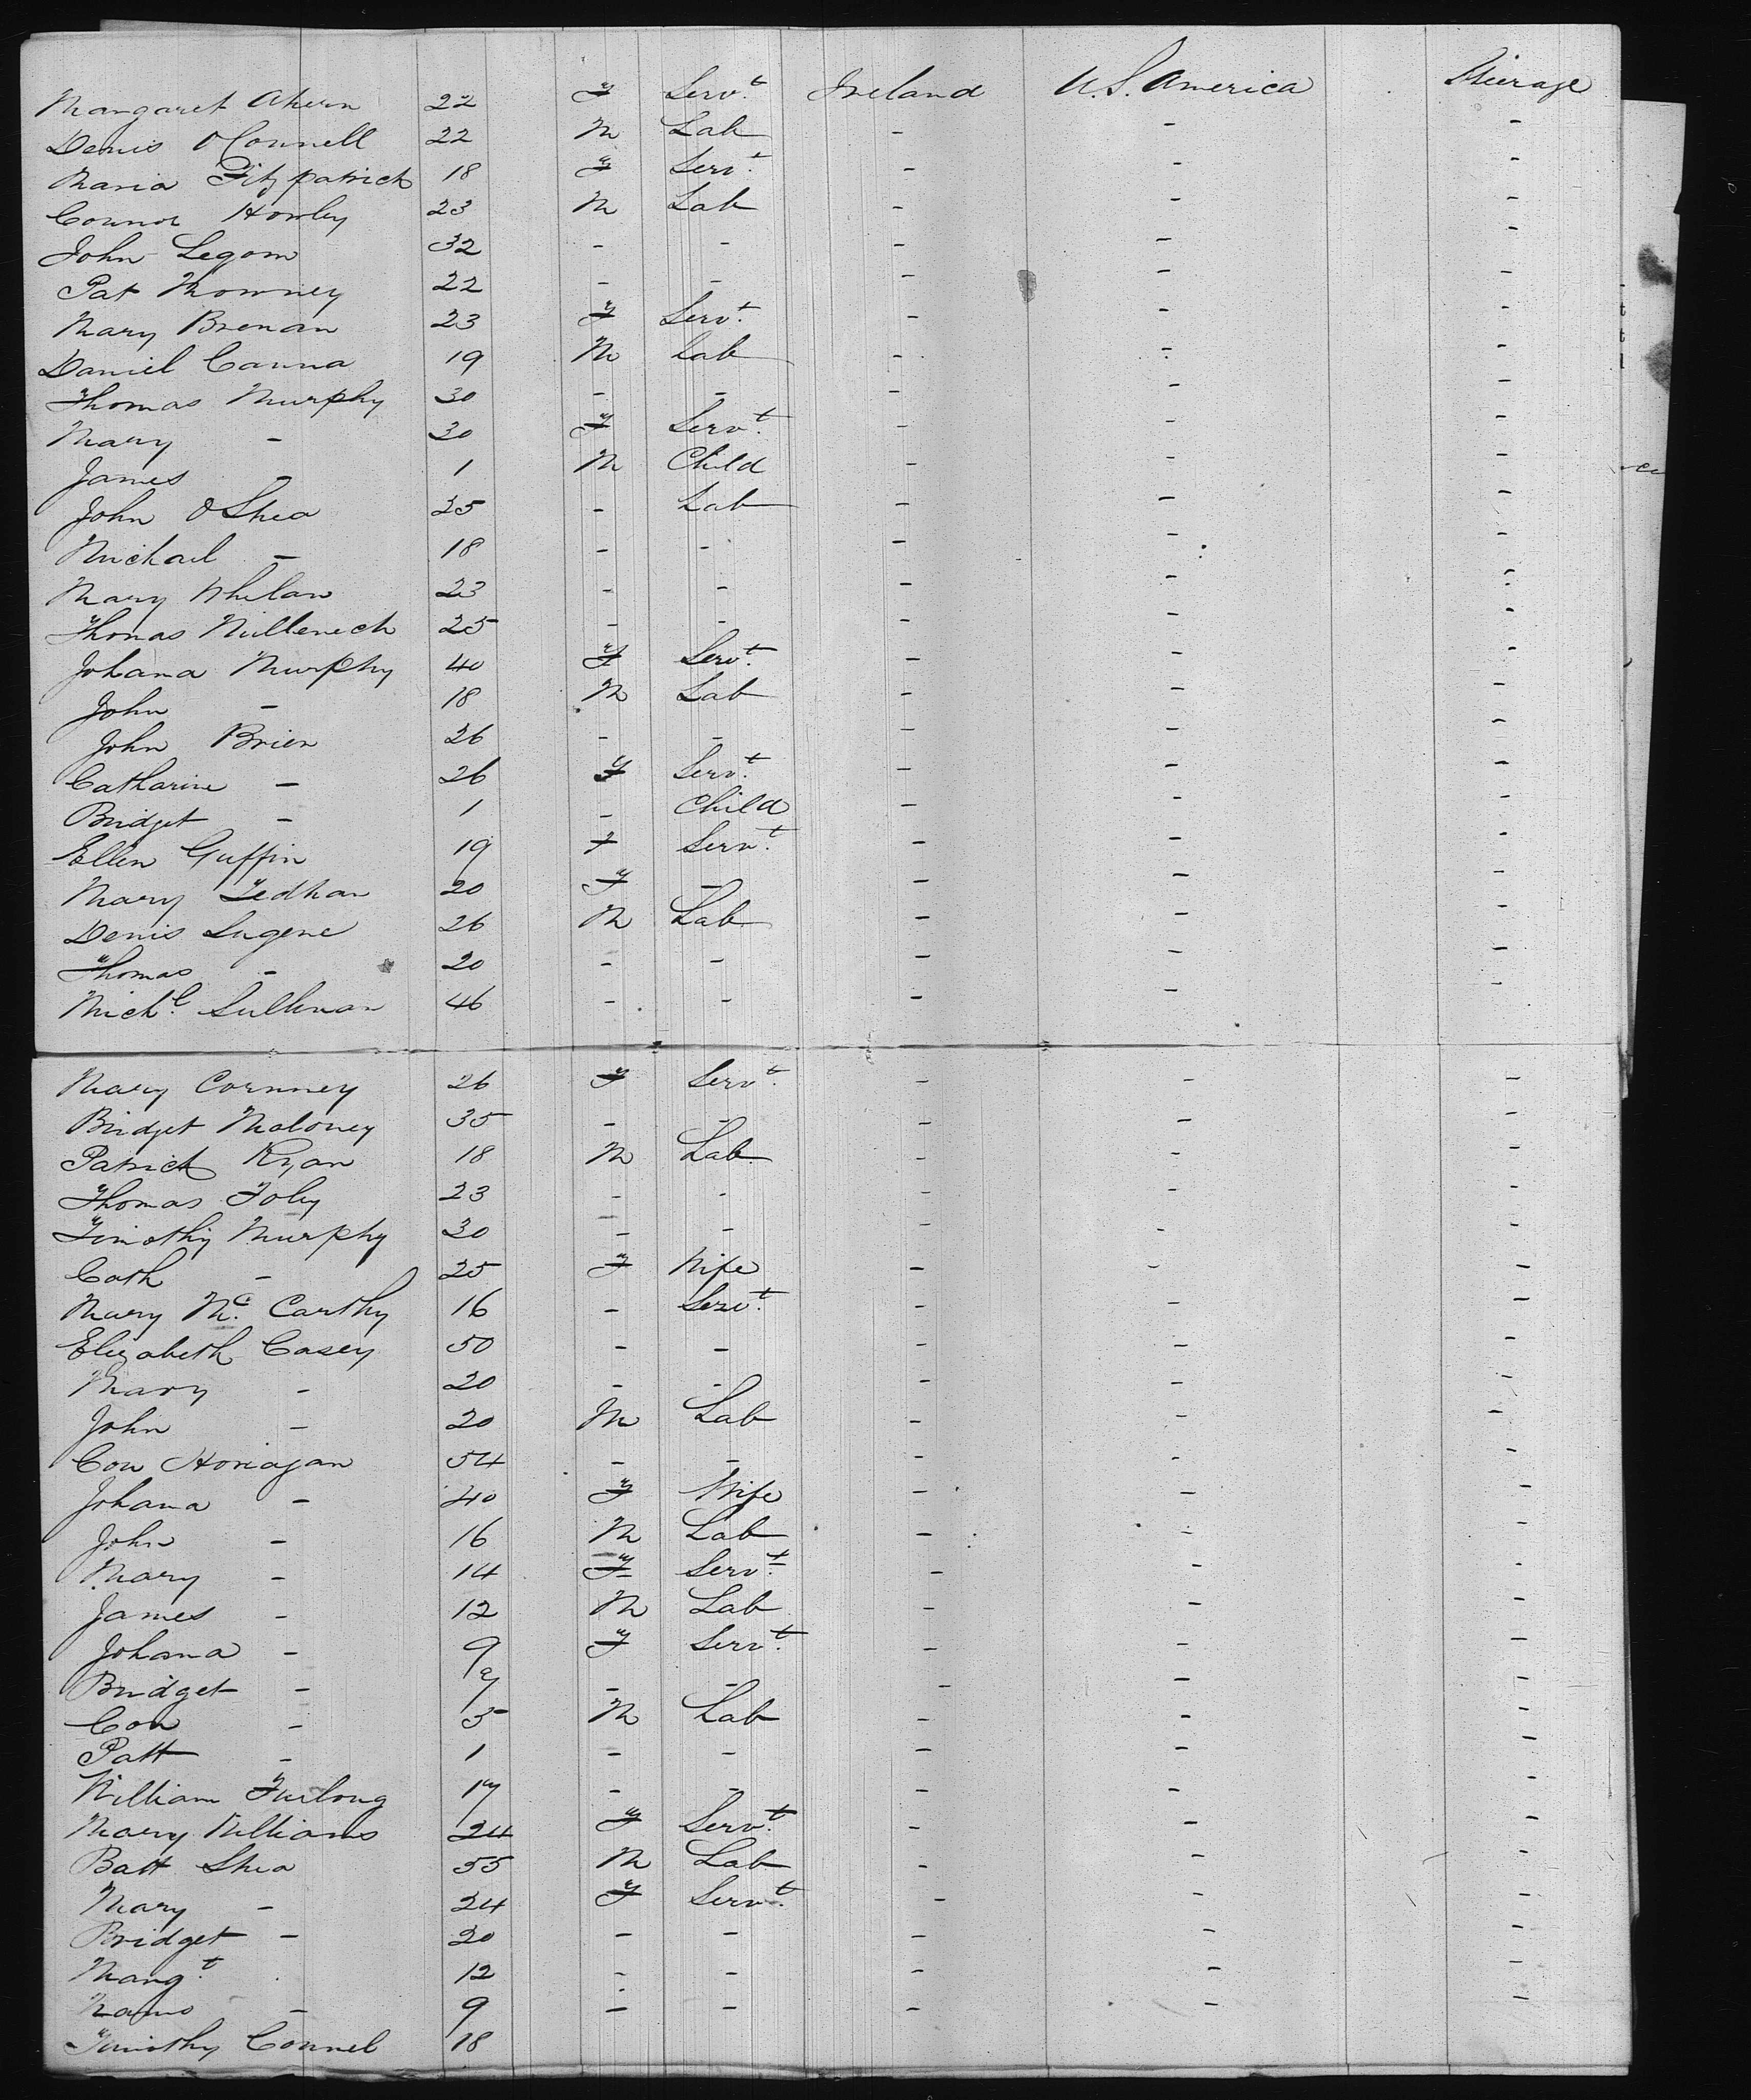 Margaret Ahern 22 F Servt. Ireland U.S. America Steerage
Denis O Connell 22 M Lab - - -
Maria Fitzpatrick 18 F Servt. - - -
Connor Howley 23 M Lab - - -
John Legom 32 - - - - -
Pat Mowney 22 - - - - -
Mary Brenan 23 F Servt. - - -
Daniel Canna 19 M Lab - - -
Thomas Murphy 30 - - - - -
Mary - 30 F Servt. - - -
James - 1 M Child - - -
John O Shea 25 - Lab - - -
Michael - 18 - - - - -
Mary Whelan 23 - - - - -
Thomas 25 - - - - -
Johana Murphy 40 F Servt. - - -
John - 18 M Lab - - -
John Brien 26 - - - - -
Catharine - 26 F Servt. - - -
Bridget - 1 - Child - - -
Ellen Guffin 19 F Servt. - - -
Mary 20 F - - - -
Denis Eugene 26 M Lab - - -
Thomas - 20 - - - - -
Michl. Sullivan 46 - - - - -
Mary Cornney 26 F Servt. - - -
Bridget Maloney 35 - - - - -
Patrick Ryan 18 M Lab - - -
Thomas Foley 23 - - - - -
Timothy Murphy 30 - - - - -
Cath - 25 F Wife - - -
Mary Mc. Carthy 16 - Servt. - - -
Elizabeth Casey 50 - - - - -
Mary - 20 - - - - -
John - 20 M Lab - - -
Con Horiagan 54 - - - - -
Johana - 40 F Wife - - -
John - 16 M Lab - - -
Mary - 14 F Servt. - - -
James - 12 M Lab - - -
Johana - 9 F Servt. - - -
Bridget - 7 - - - - -
Con - 5 M Lab - - -
Patt - 1 - - - - -
William Furlong 17 - - - - -
Mary Williams 24 F Servt. - - -
Batt Shea 55 M Lab - - -
Mary - 24 F Servt. - - -
Bridget - 20 - - - - -
Margt. 12 - - - - -
- 9 - - - - -
Timothy Connel 18